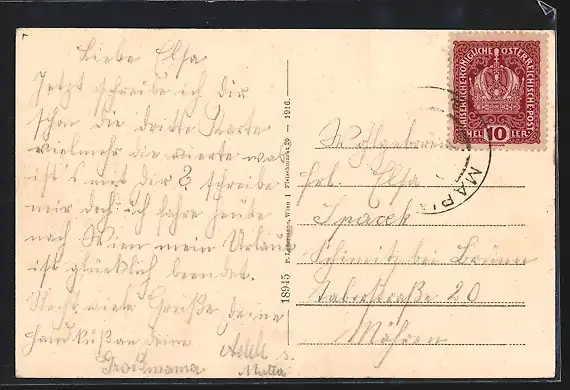 Liebe Elsa
Jetzt schreibe ich dir
schon die dritte Karte
vielmehr die vierte was
ist's mit dir? schreibe
mir doch ich fahre heute
nach Wien mein Urlaub
ist glücklich beendet.
Recht viele Grüße deine
Handkuß an deine
Großmama u.
Mutter
18945 P. Ledermann, Wien I Fleischmarkt 20 — 1916.
KAISERLICHE KÖNIGLICHE ÖSTERREICHISCHE POST
HELLER 10
MARI
Wohlgeboren
Frl. Elsa
Spacek
Schimitz bei Brünn
Taborstraße 20
Mähren